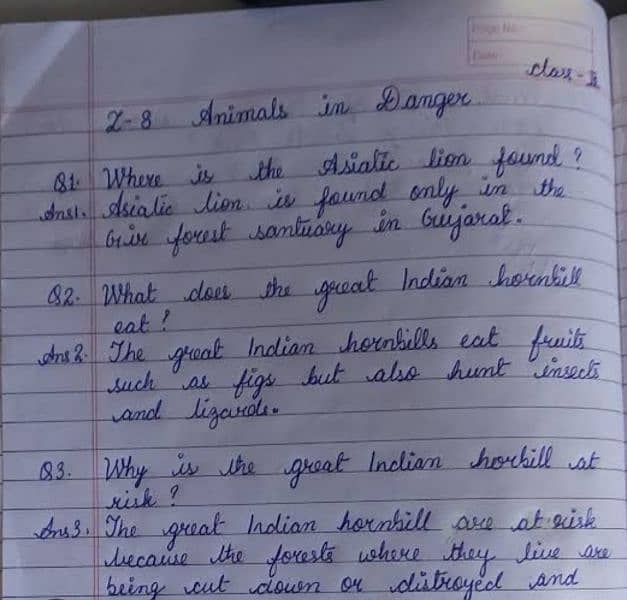 Page No.
Date
class - II
L-8 Animals in Danger
Q1. Where is the Asiatic lion found?
Ans1. Asiatic lion is found only in the
Gir forest santuary in Gujarat.
Q2. What does the great Indian hornbill
eat?
Ans2. The great Indian hornbills eat fruits
such as figs but also hunt insects
and lizards.
Q3. Why is the great Indian horbill at
risk?
Ans3. The great Indian hornbill are at risk
because the forests where they live are
being cut down or distroyed and